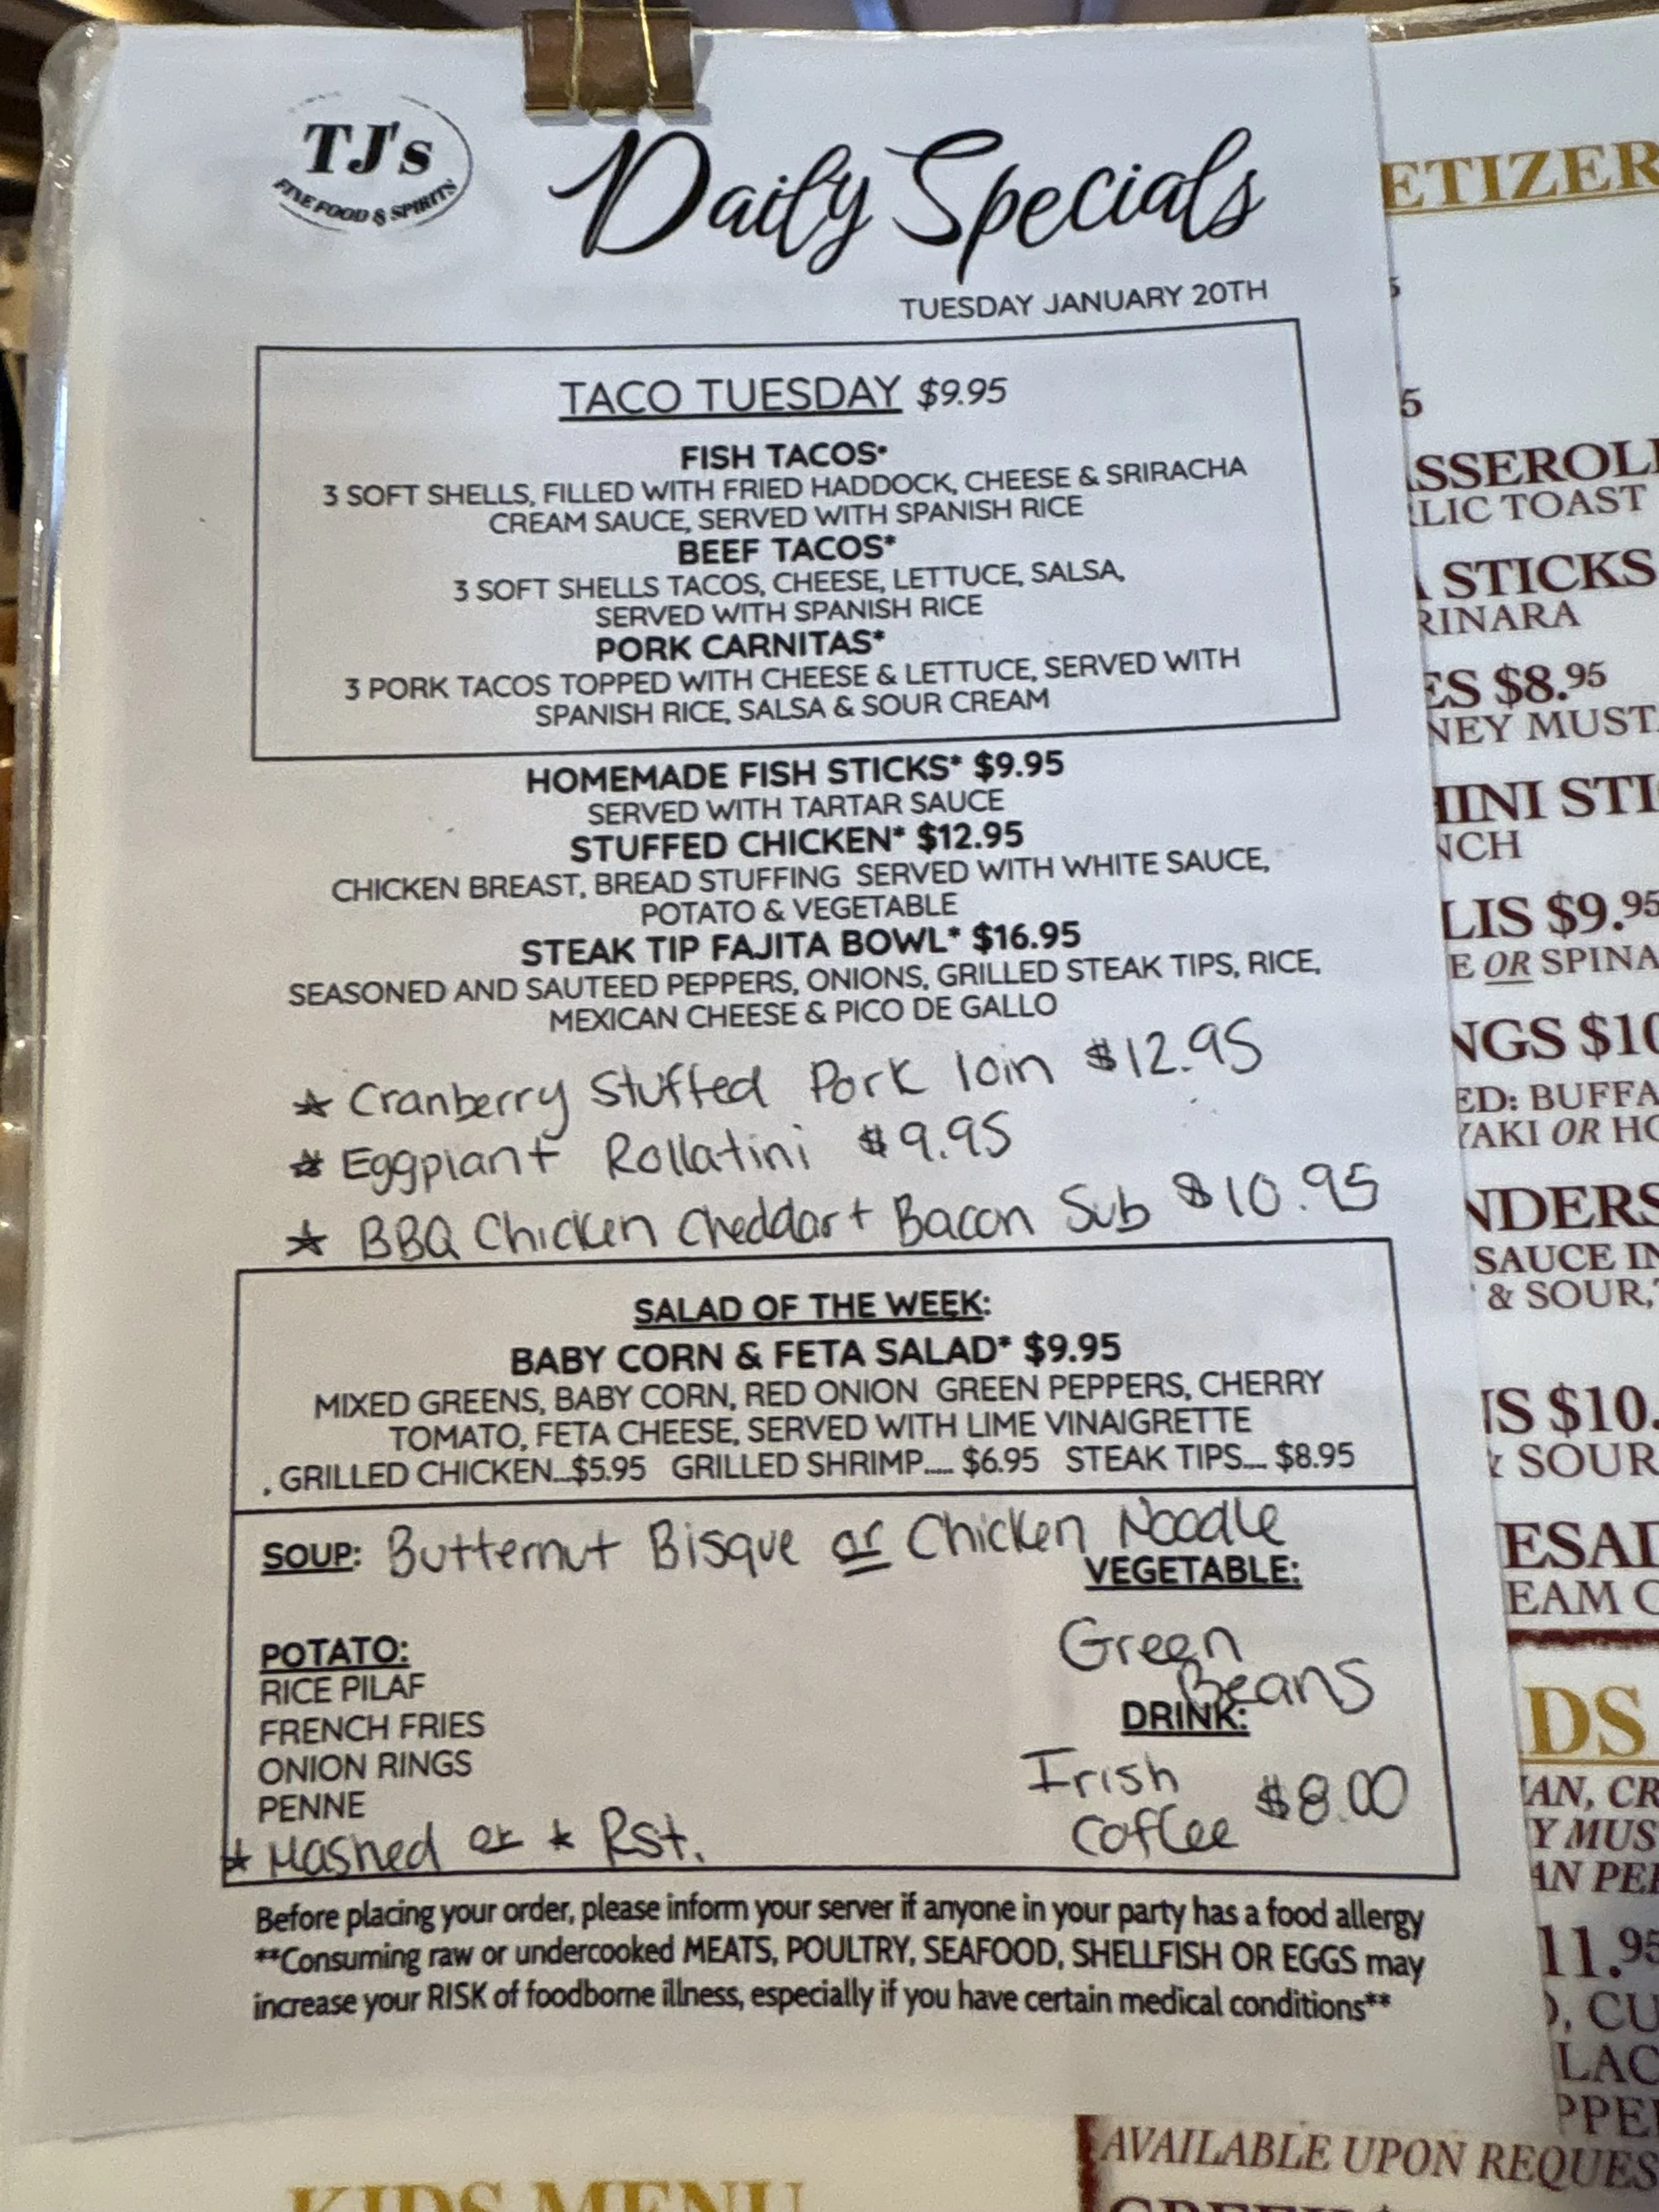 TJ's
FINE FOOD & SPIRITS
Daily Specials
TUESDAY JANUARY 20TH
TACO TUESDAY $9.95
FISH TACOS*
3 SOFT SHELLS, FILLED WITH FRIED HADDOCK, CHEESE & SRIRACHA
CREAM SAUCE, SERVED WITH SPANISH RICE
BEEF TACOS*
3 SOFT SHELLS TACOS, CHEESE, LETTUCE, SALSA,
SERVED WITH SPANISH RICE
PORK CARNITAS*
3 PORK TACOS TOPPED WITH CHEESE & LETTUCE, SERVED WITH
SPANISH RICE, SALSA & SOUR CREAM
HOMEMADE FISH STICKS* $9.95
SERVED WITH TARTAR SAUCE
STUFFED CHICKEN* $12.95
CHICKEN BREAST, BREAD STUFFING SERVED WITH WHITE SAUCE,
POTATO & VEGETABLE
STEAK TIP FAJITA BOWL* $16.95
SEASONED AND SAUTEED PEPPERS, ONIONS, GRILLED STEAK TIPS, RICE,
MEXICAN CHEESE & PICO DE GALLO
* Cranberry Stuffed Pork loin $12.95
* Eggplant Rollatini $9.95
* BBQ Chicken Cheddar + Bacon Sub $10.95
SALAD OF THE WEEK:
BABY CORN & FETA SALAD* $9.95
MIXED GREENS, BABY CORN, RED ONION GREEN PEPPERS, CHERRY
TOMATO, FETA CHEESE, SERVED WITH LIME VINAIGRETTE
. GRILLED CHICKEN...$5.95 GRILLED SHRIMP..... $6.95 STEAK TIPS.... $8.95
SOUP: Butternut Bisque or Chicken Noodle
VEGETABLE:
Green
Beans
POTATO:
RICE PILAF
FRENCH FRIES
ONION RINGS
PENNE
* Mashed or * Rst.
DRINK:
Irish
Coffee $8.00
Before placing your order, please inform your server if anyone in your party has a food allergy
**Consuming raw or undercooked MEATS, POULTRY, SEAFOOD, SHELLFISH OR EGGS may
increase your RISK of foodborne illness, especially if you have certain medical conditions**
ETIZER
5
SSEROL
LIC TOAST
STICKS
RINARA
ES $8.95
NEY MUST
INI STI
NCH
LIS $9.95
E OR SPINA
NGS $10
ED: BUFFA
YAKI OR HO
NDERS
SAUCE IN
& SOUR,
NS $10.
& SOUR
ESAD
EAM
DS
AN, CR
Y MUS
AN PE
11.95
), CU
LAC
PPE
AVAILABLE UPON REQUES
KIDS MENU